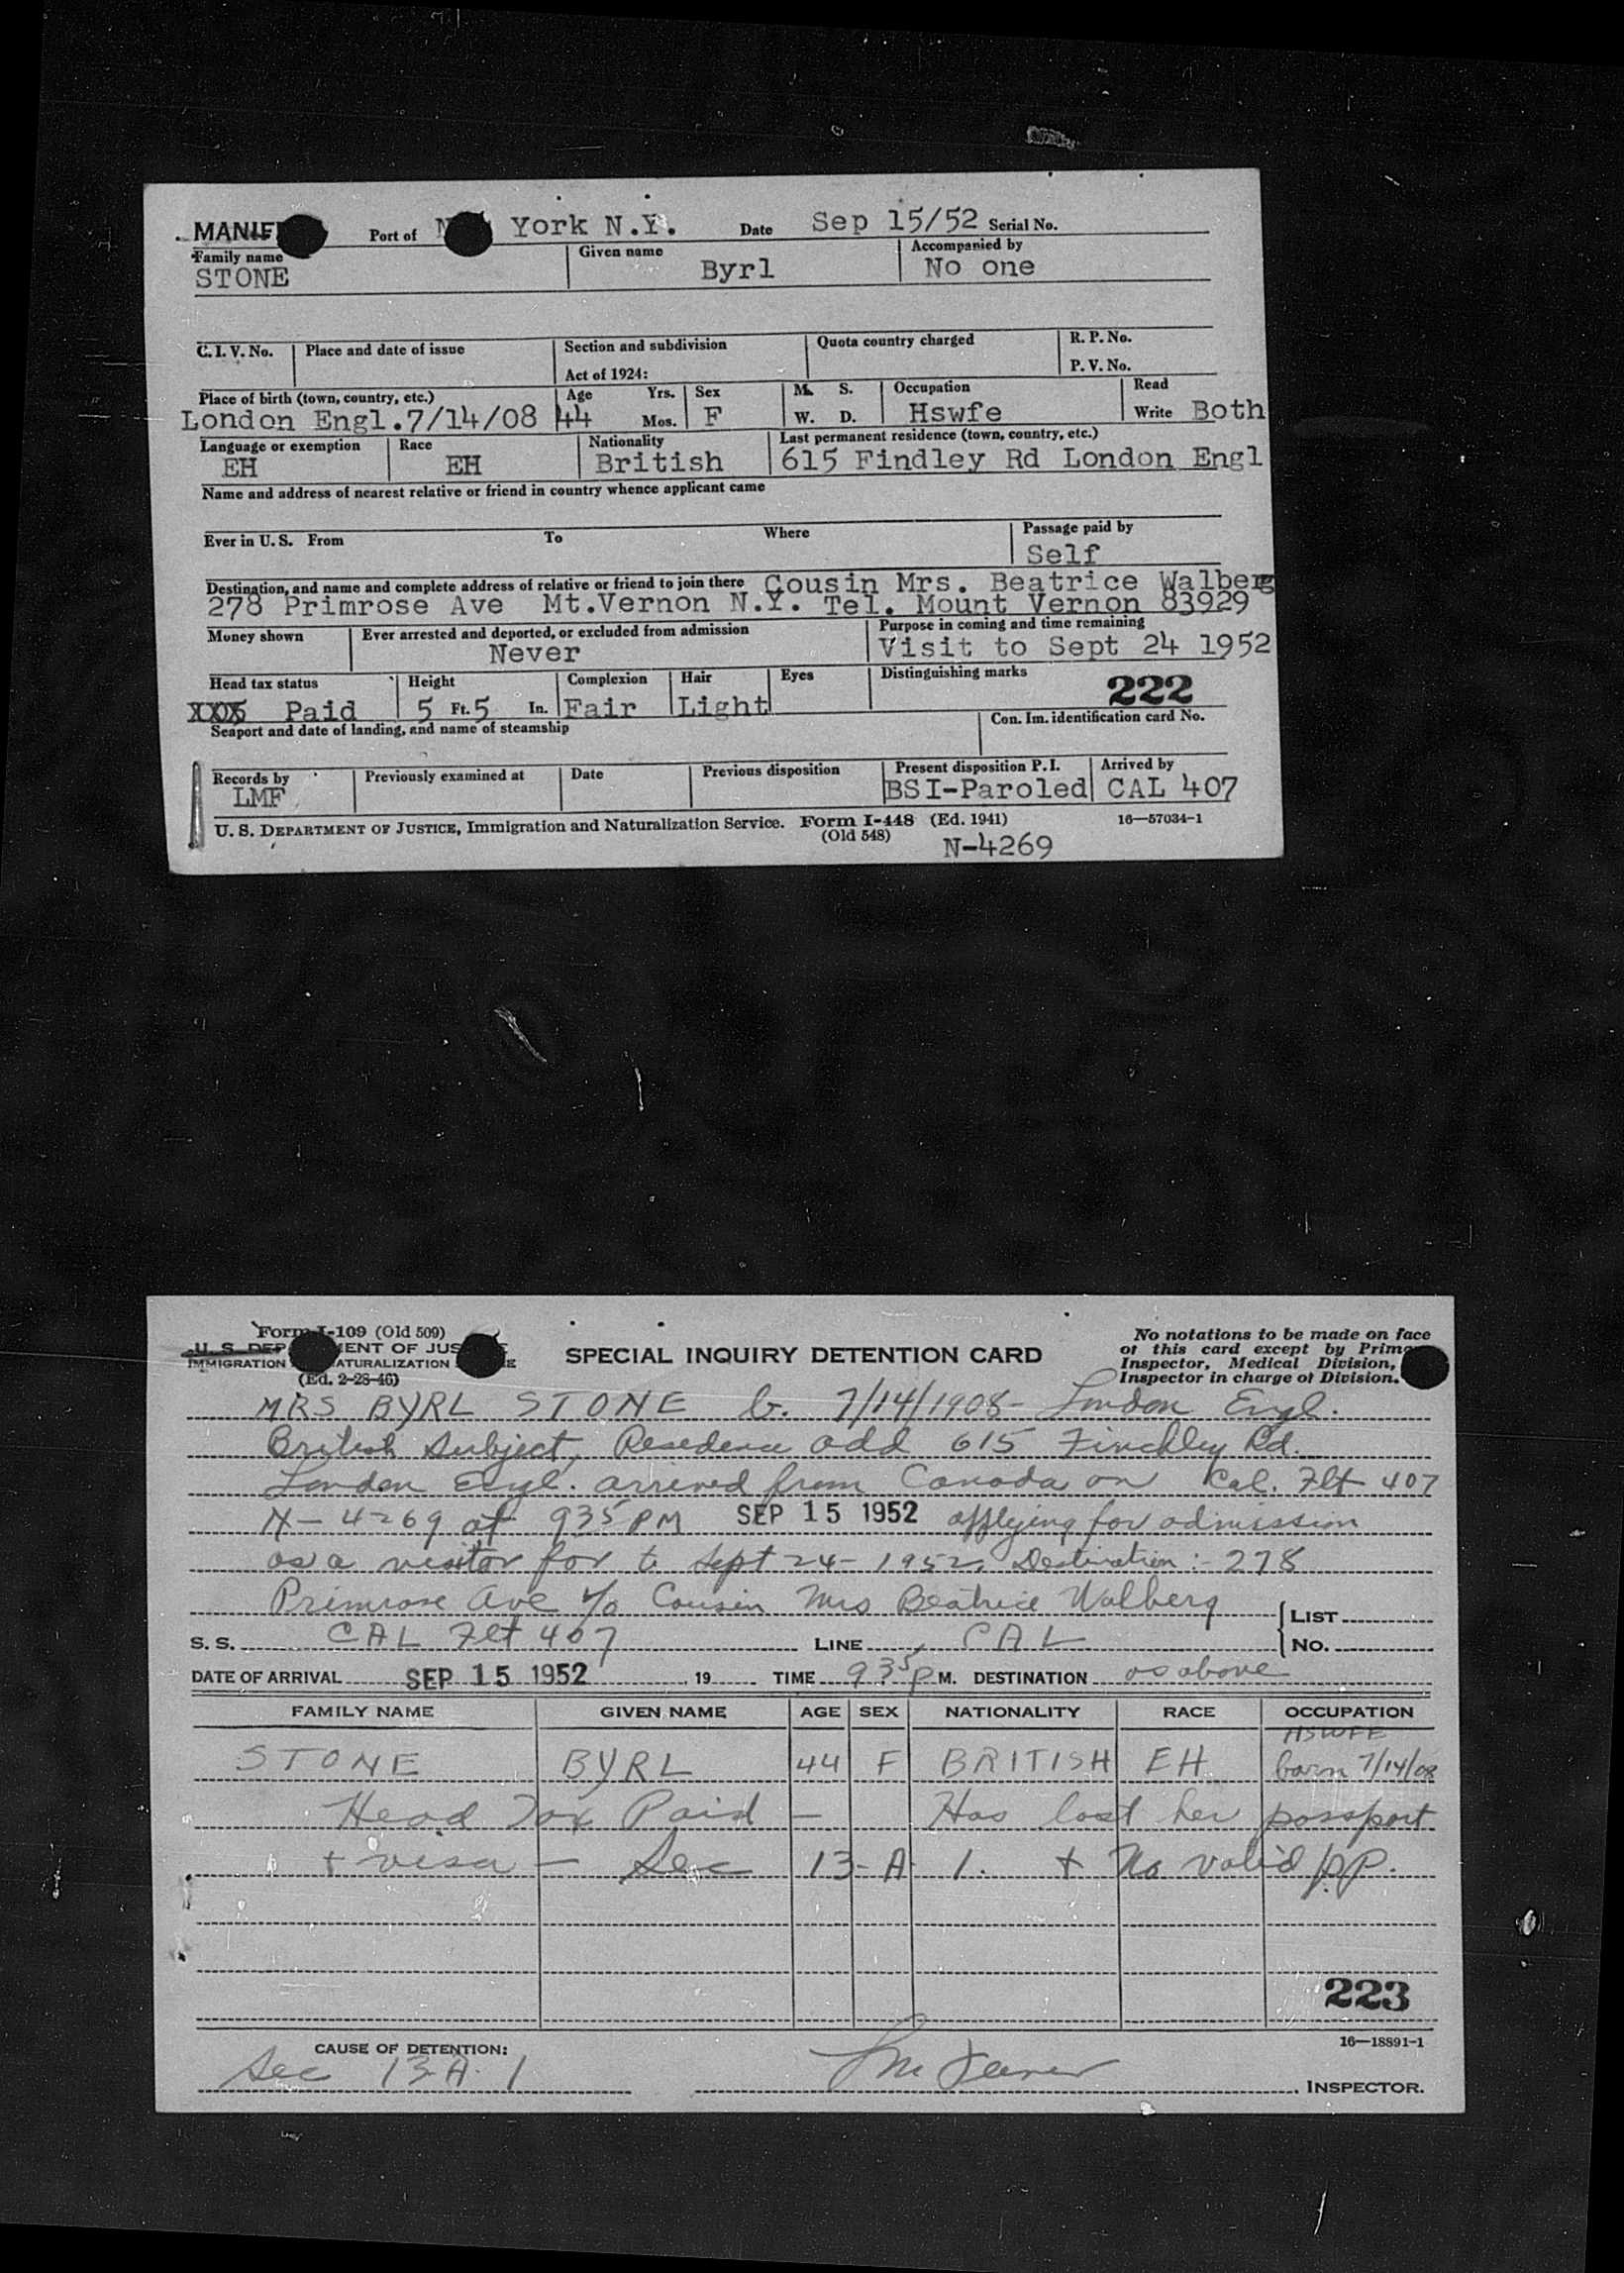 MANIF
Port of N York N.Y. Date Sep 15/52 Serial No.
Family name Given name Accompanied by
STONE Byrl No one
C. I. V. No. Place and date of issue Section and subdivision Quota country charged R. P. No.
Act of 1924: P. V. No.
Place of birth (town, country, etc.) Age Yrs. Sex M. S. Occupation Read
London Engl.7/14/08 44 Mos. F W. D. Hswfe Write Both
Language or exemption Race Nationality Last permanent residence (town, country, etc.)
EH EH British 615 Findley Rd London Engl
Name and address of nearest relative or friend in country whence applicant came
Ever in U. S. From To Where Passage paid by
Self
Destination, and name and complete address of relative or friend to join there Cousin Mrs. Beatrice Walberg
278 Primrose Ave Mt.Vernon N.Y. Tel. Mount Vernon 83929
Money shown Ever arrested and deported, or excluded from admission Purpose in coming and time remaining
Never Visit to Sept 24 1952
Head tax status Height Complexion Hair Eyes Distinguishing marks
Paid 5 Ft. 5 In. Fair Light 222
Seaport and date of landing, and name of steamship Con. Im. identification card No.
Records by Previously examined at Date Previous disposition Present disposition P. I. Arrived by
LMF BSI-Paroled CAL 407
U. S. DEPARTMENT OF JUSTICE, Immigration and Naturalization Service. Form I-448 (Ed. 1941) 16—57034-1
(Old 548) N-4269
Form I-109 (Old 509)
U. S. DEP MENT OF JUS
IMMIGRATION ATURALIZATION E
(Ed. 2-28-46)
SPECIAL INQUIRY DETENTION CARD
No notations to be made on face
of this card except by Prim
Inspector, Medical Division,
Inspector in charge of Division.
MRS BYRL STONE b. 7/14/1908 - London Engl.
British Subject, Residence add 615 Finchley Rd.
London Engl. arrived from Canada on Cal. Flt 407
N-4269 at 935 PM SEP 15 1952 applying for admission
as a visitor for to Sept 24-1952. Destination:- 278
Primrose Ave c/o Cousin Mrs Beatrice Walberg LIST
S. S. CAL Flt 407 LINE CAL NO.
DATE OF ARRIVAL SEP 15 1952 , 19 TIME 935 P M. DESTINATION as above
FAMILY NAME GIVEN NAME AGE SEX NATIONALITY RACE OCCUPATION
HSWFE
STONE BYRL 44 F BRITISH EH born 7/14/08
Head Tax Paid — Has lost her passport
+ visa — Sec 13-A-1. + No valid p.p.
223
16—18891-1
CAUSE OF DETENTION:
Sec 13-A-1
INSPECTOR.